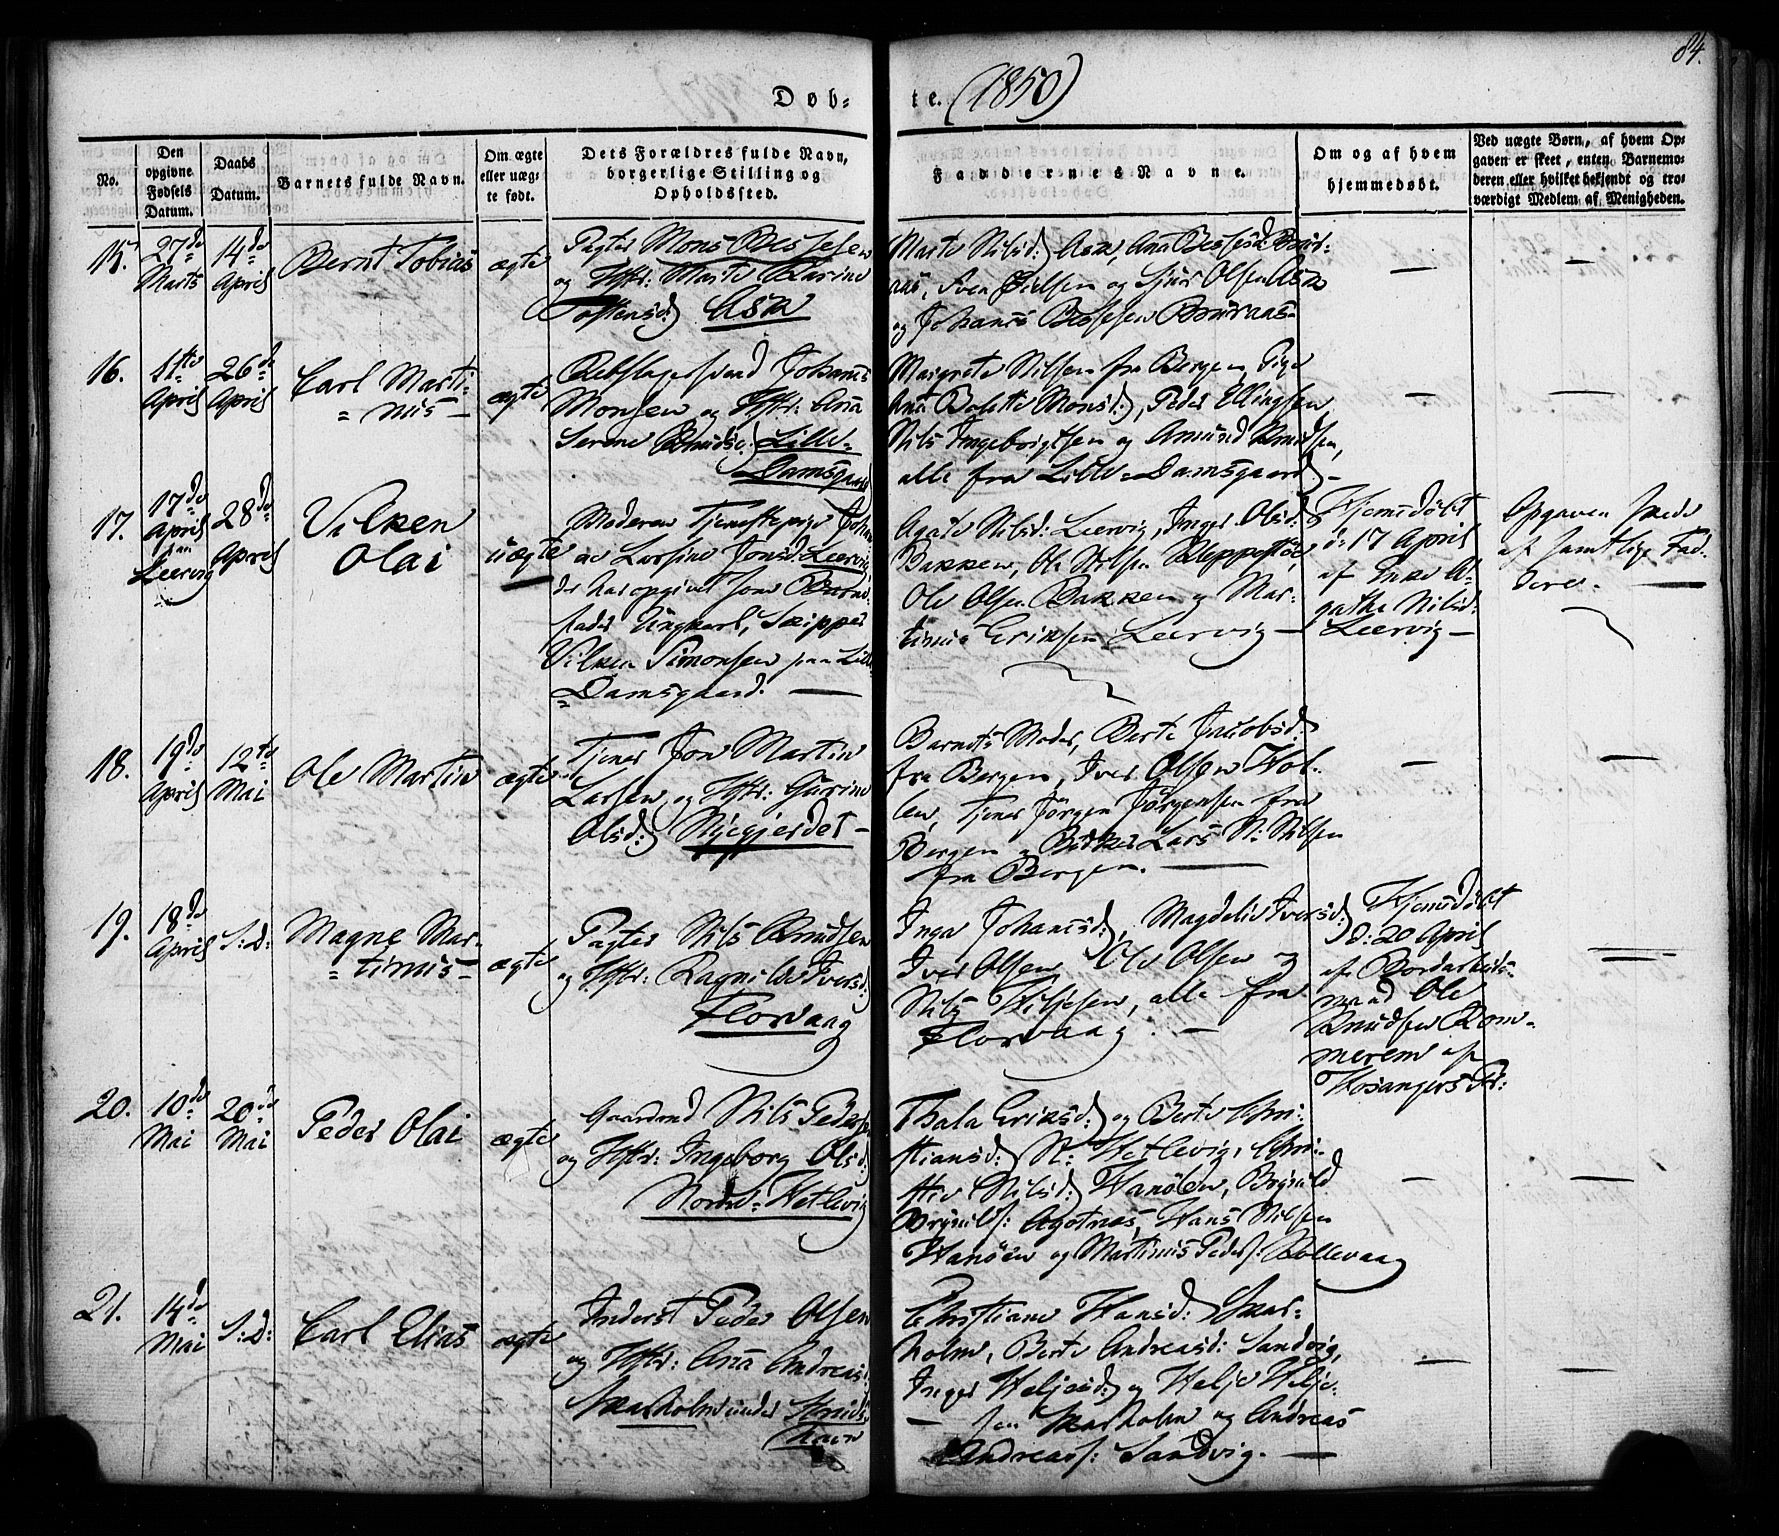 84.
Døb-te. (1850)
No.
Den opgivne Fødsels Datum.
Daabs Datum.
Barnets fulde Navn.
Om ægte eller uægte født.
Dets Forældres fulde Navn, borgerlige Stilling og Opholdssted.
Faddernes Navne.
Om og af hvem hjemmedøbt.
Ved uægte Børn, af hvem Opgaven er skeet, enten Barnemoderen eller hvilket bekjendt og troværdigt Medlem af Menigheden.
15.
27de Marts
14de April
Bernt Tobias
ægte
Pagter Mons Bessesen
og Hstr: Marte Karine
Tostensd: Ask
Marte Nilsd: Ask, Ana Bessesd: Bour-
aas, Sven Nielsen og Sjur Olsen Ask
og Johanes Bessesen Bouraas-
—
—
16.
1ste April
26de April
Carl Marti-
nus -
ægte
Rebslagersvend Johanes
Monsen og Hstr: Ana
Serene Knudsd: Lille-
Damsgaard
Margrete Nilsen fra Bergen, Pige
Ana Bolette Monsd:, Peder Ellingsen
Nils Ingebrigtsen og Amund Knudsen,
alle fra Lille Damsgaard -
—
—
17.
17de April paa Leervig
28de April
Vilken
Olai
uægte
Moderen Tjenestepige Johan-
ne Larsine Jonsd: Leervig
der har opgivet som Barne-
fader Ungkarl, Skipper
Vilken Simonsen paa Lille
Damsgaard. —
Agate Nilsd: Leervig, Inger Olsd:
Bakken, Ole Nilsen Kleppestø,
Ole Olsen Bakken og Mar-
tinus Eriksen Leervig -
Hjemedøbt
d: 17 April
af Enke A-
gatha Nilsd:
Leervig -
Opgaven skede
af samtlige Fad-
dere. —
18.
19de April
12te Mai
Ole Martin
ægte
Tjener Jon Martin
Larsen og Hstr: Gurine
Olsd: Nÿegjerdet -
Barnets Moder, Berte Jacobsd:
fra Bergen, Iver Olsen Hol-
len, Tjener Jörgen Jörgensen fra
Bergen og Bødker Lars N: Nilsen
fra Bergen. —
—
—
19.
18de April
S: D:
Magne Mar-
tinus -
ægte
Pagter Nils Knudsen
og Hstr: Ragnilde Iversd:
Florvaag
Inga Johanesd:, Magdeli Iversd:
Iver Olsen, Ole Olsen og
Nils Hiljesen, alle fra
Florvaag. —
Hjemedøbt
d: 20 April
af Bordarbeids-
mand Ole
Knudsen Rom-
merem af
Hosangers Pr:
20.
10de Mai
20de Mai
Peder Olai
ægte
Gaardmd Nils Peders
og Hstr: Ingeborg Olsd:
Nordre Hetlevig
Thala Eriksd: og Berte Chri-
stiansd: N: Hetlevig, Chri-
sti Nilsd: Hanöen, Brynild
Brynilds: Agotnes, Hans Nilsen
Hanöen og Martinus Peders: Rollevaag
—
—
21.
14de Mai
S: D:
Carl Elias
ægte
Inderst Peder Olsen
og Hstr: Ana Andreasd:
Skarholm under Strudshavn
Christiane Hansd: Skar-
holm, Berte Andreasd: Sandvig,
Inger Heljesd: og Helje Helje-
sen Skarholm og Andreas
Andreas: Sandvig. —
—
—